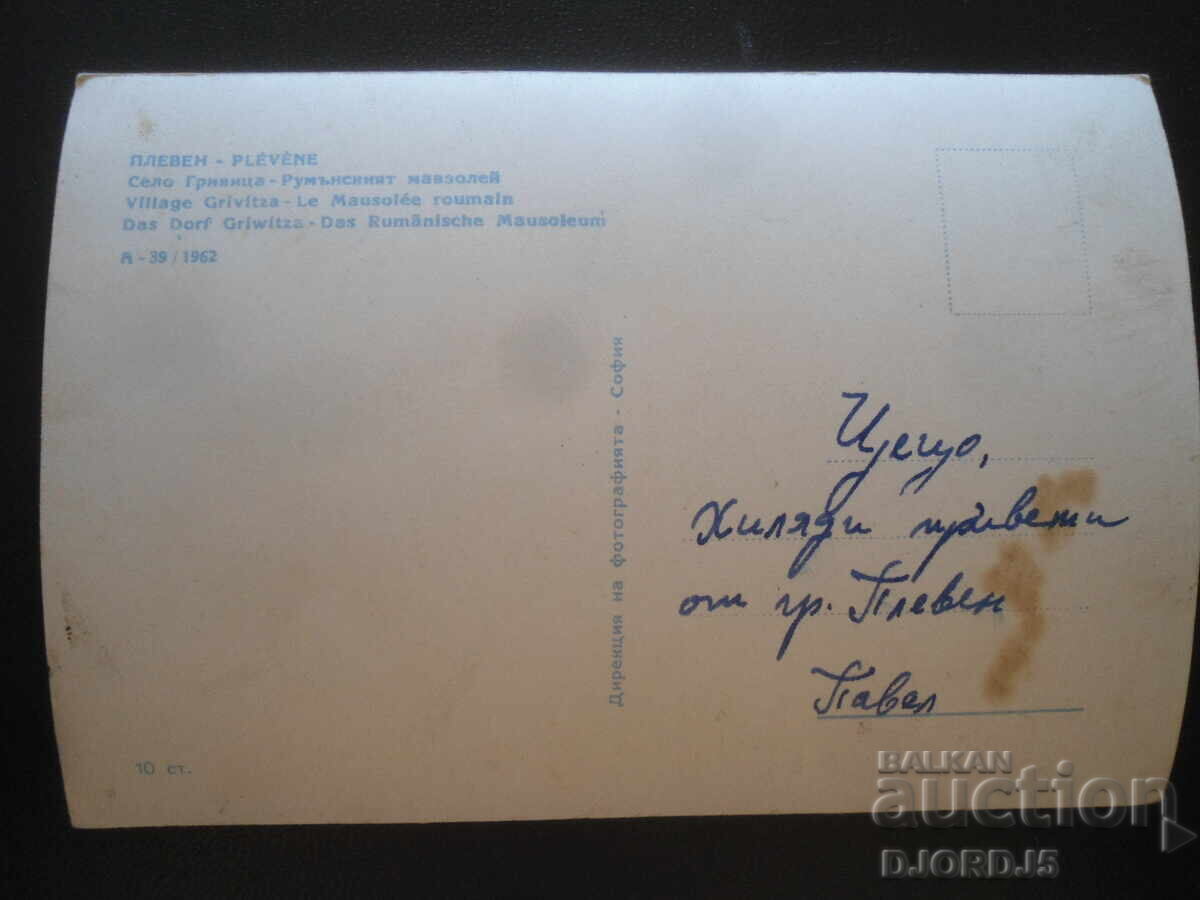 ПЛЕВЕН - PLÉVÈNE
Село Гривица - Румънският мавзолей
Village Grivitza - Le Mausolée roumain
Das Dorf Griwitza - Das Rumänische Mausoleum
А - 39 / 1962
Дирекция на фотографията - София
Хиляди привети
от гр. Плевен
Павел
10 ст.
BALKAN
auction
DJORDJ5